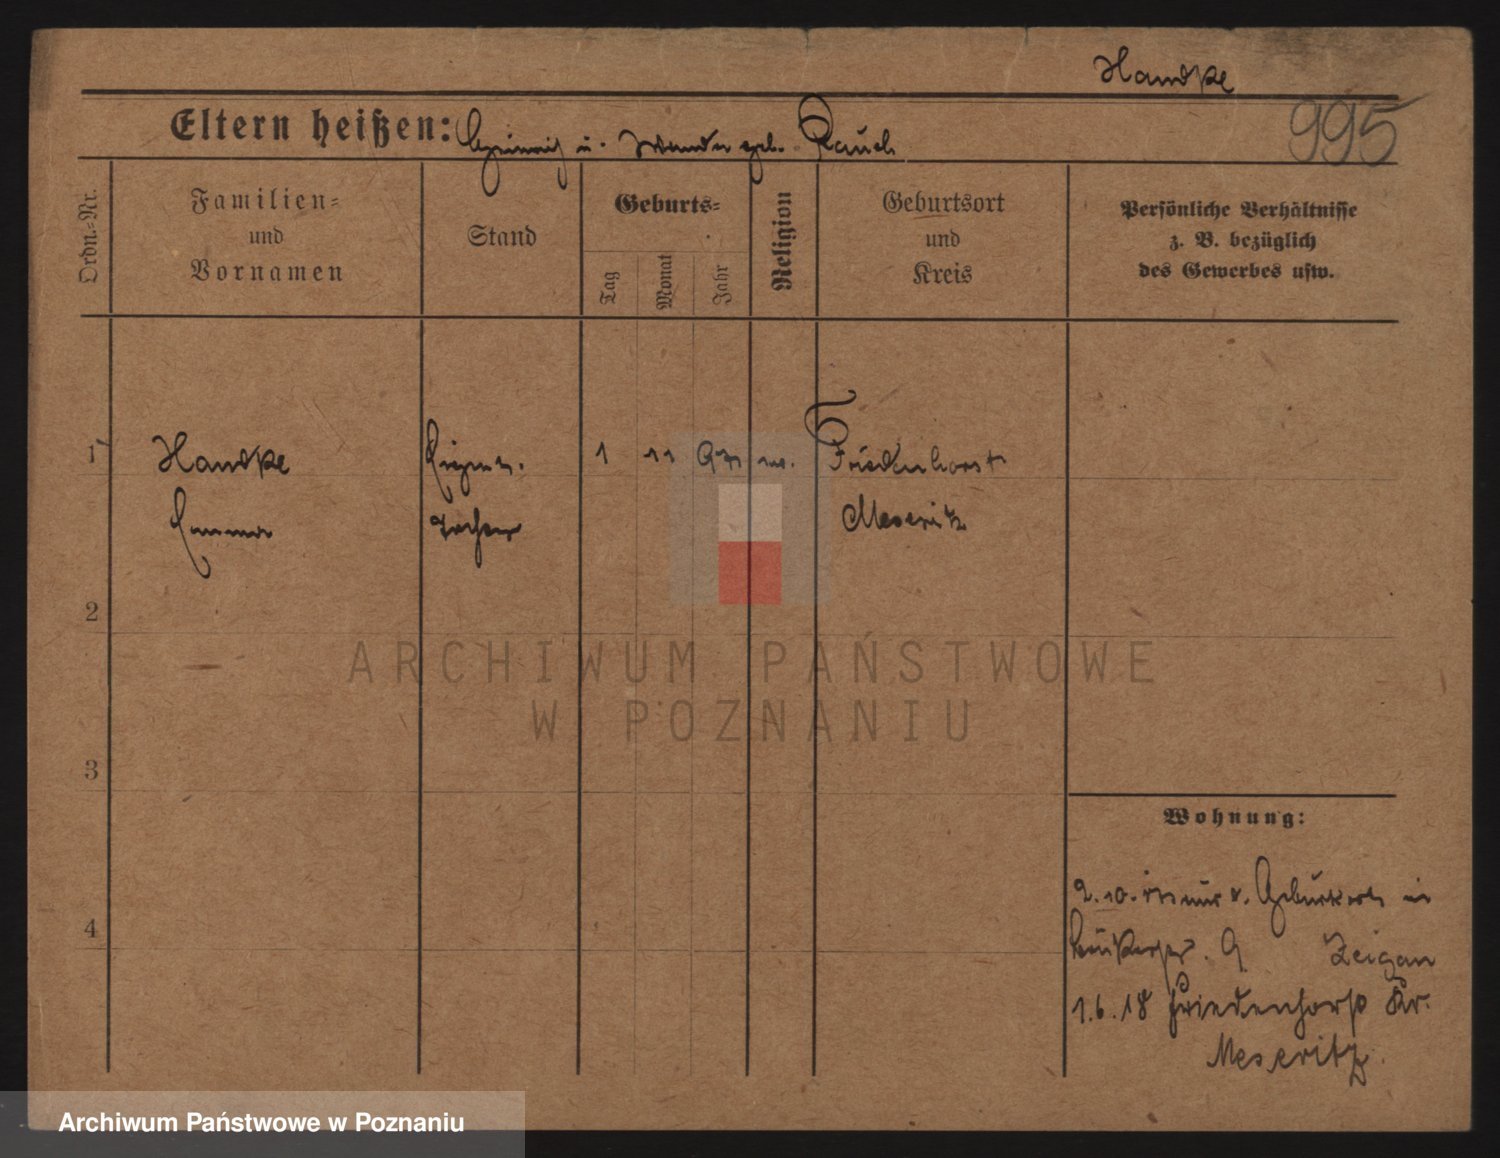 Handke
995
Eltern heißen: Heinrich u. Wanda geb. Rauch
Ordn.-Nr.
Familien-
und
Vornamen
Stand
Geburts-
Tag
Monat
Jahr
Religion
Geburtsort
und
Kreis
Persönliche Verhältnisse
z. B. bezüglich
des Gewerbes usw.
1 Handke 1 11 Friedenhorst
Emma Tochter Meseritz
2
3
4
Wohnung:
2.10. v. Geburtsort in
Zeigan
1.6.18 Friedenhorst Kr.
Meseritz.
ARCHIWUM PAŃSTWOWE
W POZNANIU
Archiwum Państwowe w Poznaniu